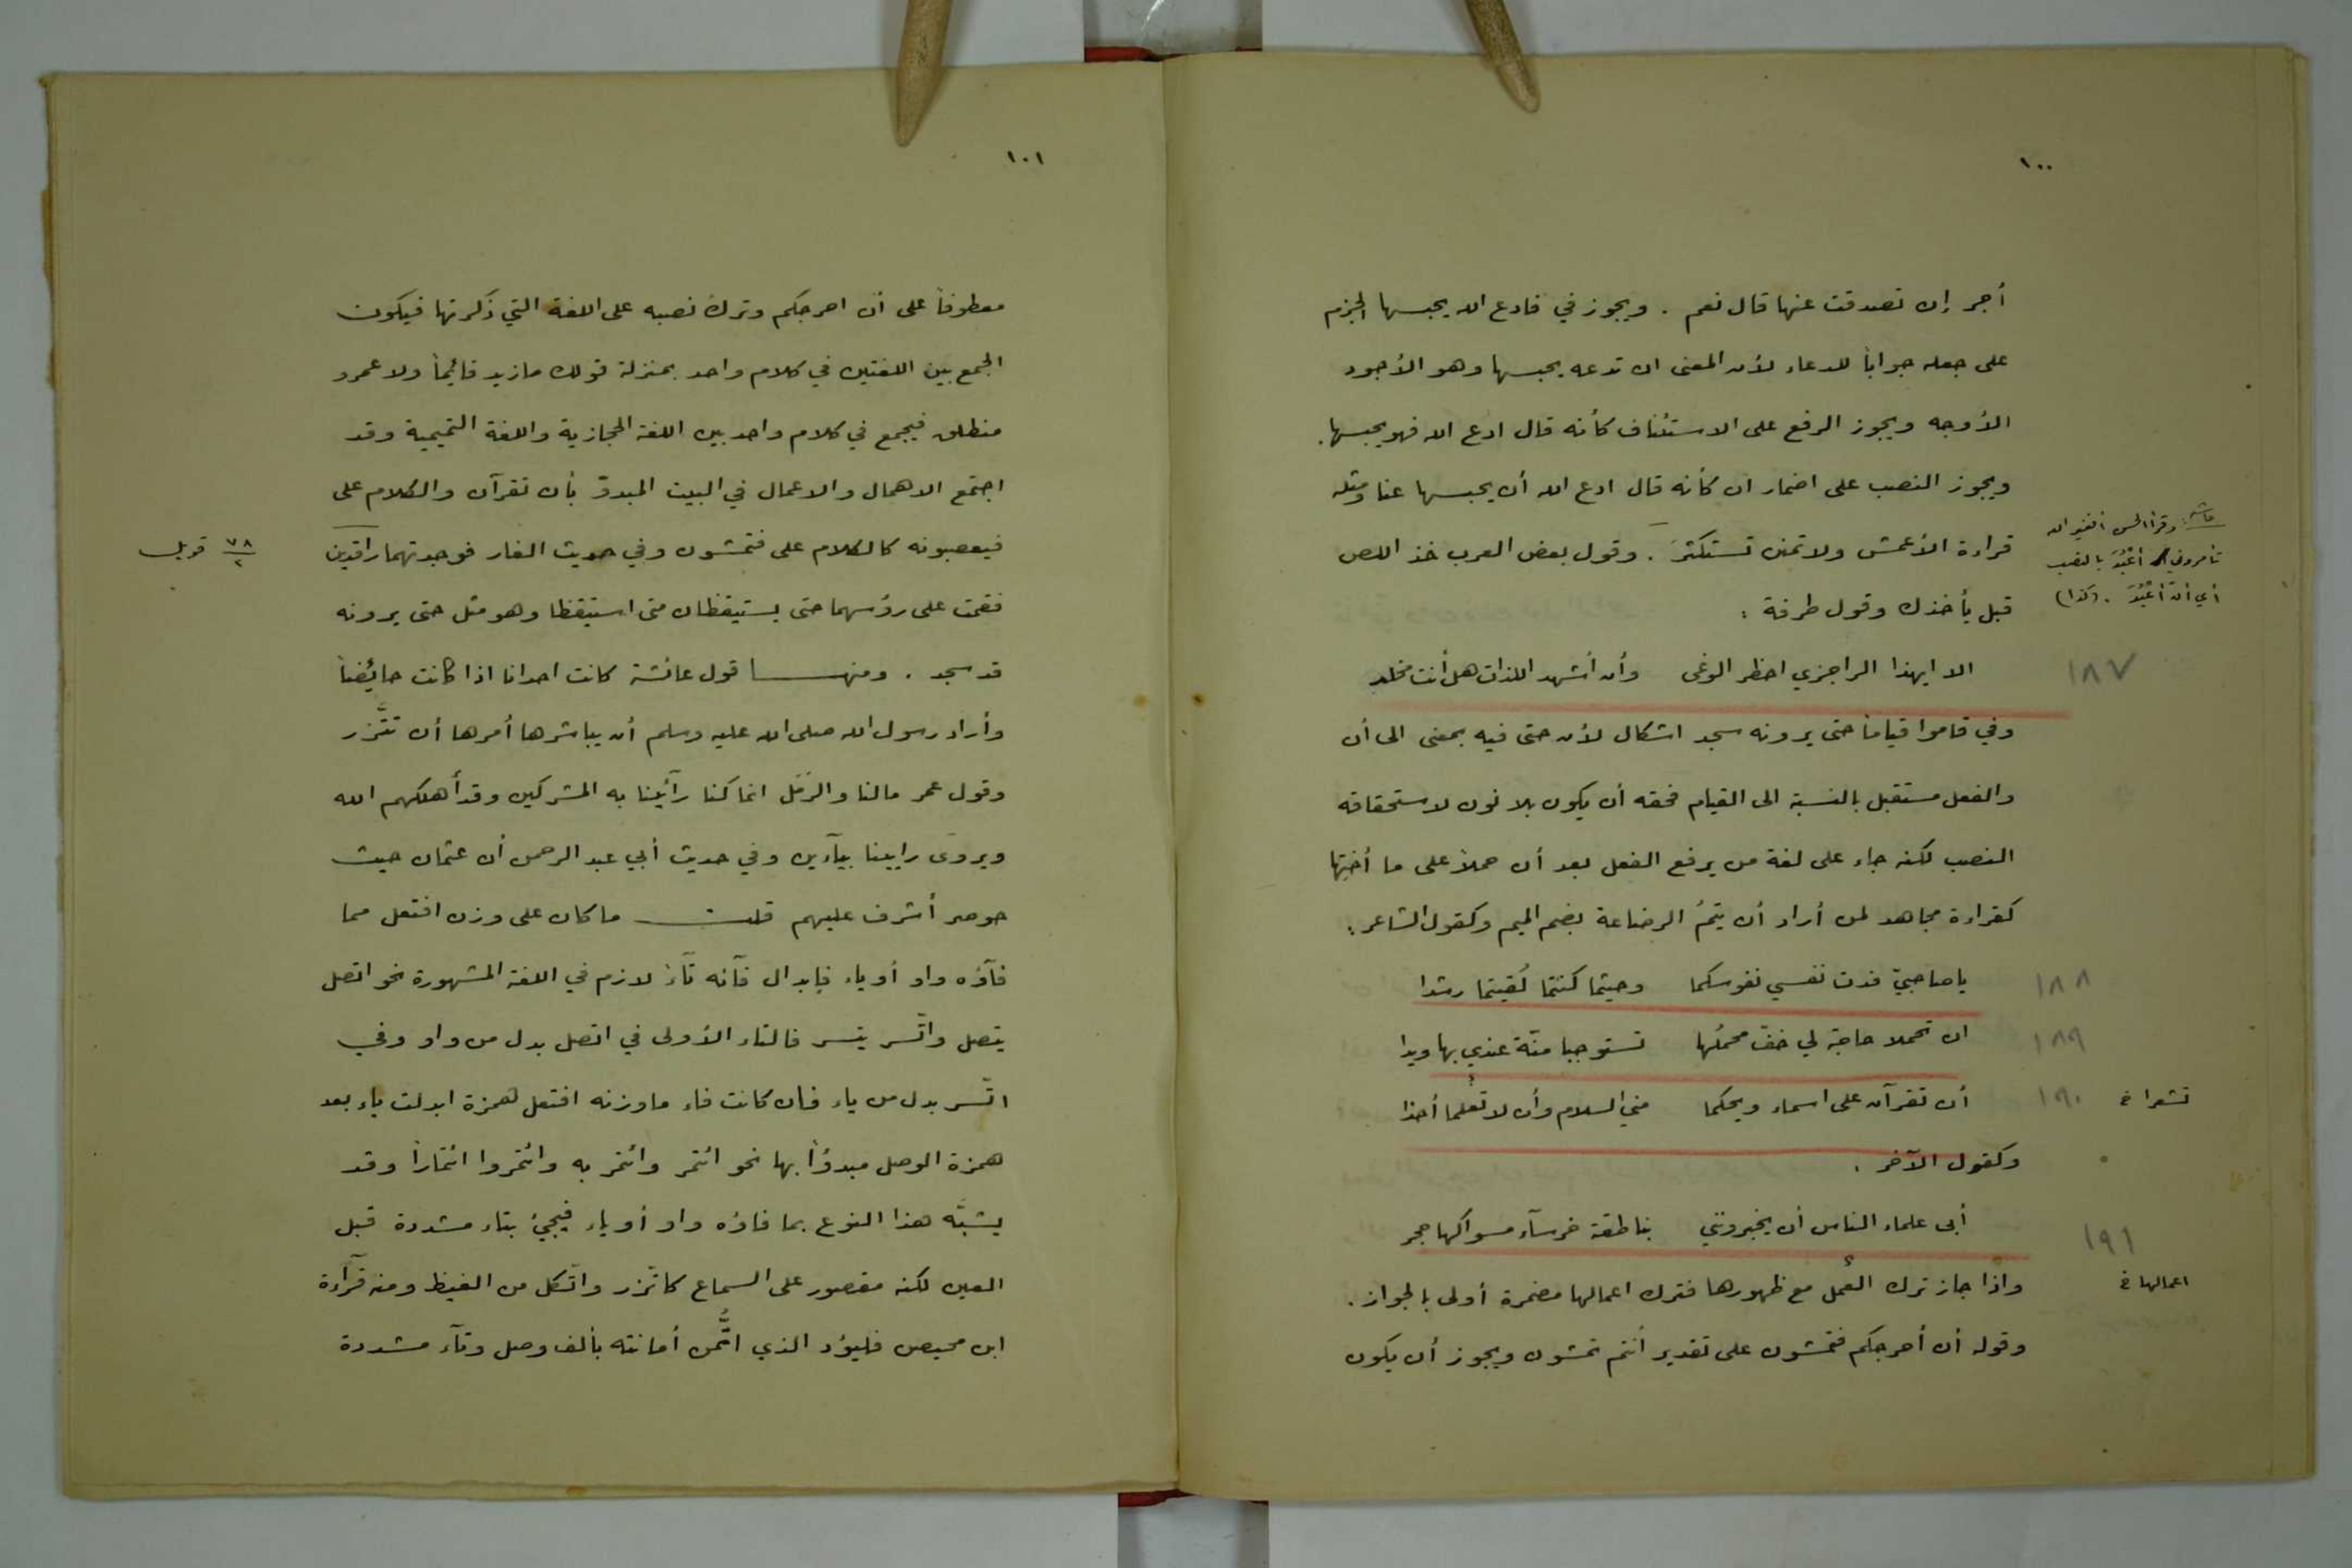 ١٠٠
أجر إن تصدقت عنها قال نعم . ويجوز في فادع الله يحبسها الجزم
على جعله جواباً للدعاء لأن المعنى ان تدعه يحبسها وهو الأجود
الأوجه ويجوز الرفع على الاستئناف كأنه قال ادع الله فهو يحبسها .
ويجوز النصب على اضمار ان كأنه قال ادع الله أن يحبسها عنا ومثله
قراءة الأعمش ولا تمنن تستكثرَ . وقول بعض العرب خذ اللص
قبل يأخذك وقول طرفة :
حاشية : وقرأ الحسن أفغير الله
تأمروني أعبُدَ بالنصب
أي أن أعبُدَ . (كذا)
١٨٧
الا ايهذا الراجزي احظر الوغى وأن أشهد اللذات هل أنت مخلد
وفي قاموا قياماً حتى يرونه سجد اشكال لأن حتى فيه بمعنى الى أن
والفعل مستقبل بالنسبة الى القيام فحقه أن يكون بلا نون لاستحقاقه
النصب لكنه جاء على لغة من يرفع الفعل بعد أن حملاً على ما أختها
كقراءة مجاهد لمن أراد أن يتمُ الرضاعة بضم الميم وكقول الشاعر :
١٨٨
يا صاحبيّ فدت نفسي نفوسكما وحيثما كنتما لُقيتما رشدا
١٨٩
ان تحملا حاجة لي خفّ محملُها تستوجبا منّة عندي بها ويدا
١٩٠
أن تقرآن على اسماء ويحكما مني السلام وأن لا تُعلما أحدا
تشعرا خ
وكقول الآخر .
١٩١
أبى علماء الناس أن يخبرونني بناطقة خرسآء مسواكها حجر
واذا جاز ترك العمل مع ظهورها فترك اعمالها مضمرة أولى بالجواز .
اعمالها خ
وقوله أن أحرجكم فتمشون على تقدير أنتم تمشون ويجوز أن يكون
١٠١
معطوفاً على أن احرجكم وترك نصبه على اللغة التي ذكرتها فيكون
الجمع بين اللغتين في كلام واحد بمنزلة قولك ما زيد قائيماً ولا عمرو
منطلق فيجمع في كلام واحد بين اللغة الحجازية واللغة التميمية وقد
اجتمع الاهمال والاعمال في البيت المبدوّ بأن تقرآن والكلام على
فيعصبونه كالكلام على فتمشون وفي حديث الغار فوجدتهما راقدين
٧٨/٢ قوبل
فقمت على رؤسهما حتى يستيقظان متى استيقظا وهو مثل حتى يرونه
قد سجد . ومنهـــا قول عائشة كانت احدانا اذا كانت حايُضاً
وأراد رسول الله صلى الله عليه وسلم أن يباشرها أمرها أن تتَّزر
وقول عمر مالنا والرمَل انما كنا رآئينا به المشركين وقد أهلكهم الله
ويروى رايينا بيآءين وفي حديث أبي عبد الرحمن أن عثمان حيث
حوصر أشرف عليهم قلتـــ ما كان على وزن افتعل مما
فآؤه واو أو ياء فابدال فآئه تآءً لازم في اللغة المشهورة نحو اتصل
يتصل واتّسر يتسر فالتاء الأولى في اتصل بدل من واو وفي
اتّسر بدل من ياء فان كانت فاء ما وزنه افتعل همزة ابدلت ياء بعد
همزة الوصل مبدوُأ بها نحو ائتمر وائتمر به وائتمروا ائتماراً وقد
يشبّه هذا النوع بما فاؤه واو أو ياء فيجيئ بتاء مشددة قبل
العين لكنه مقصور على السماع كاتّزر واتّكل من الغيظ ومنه قرآءة
ابن محيصن فليؤد الذي اتُّمن أمانته بألف وصل وتآء مشددة